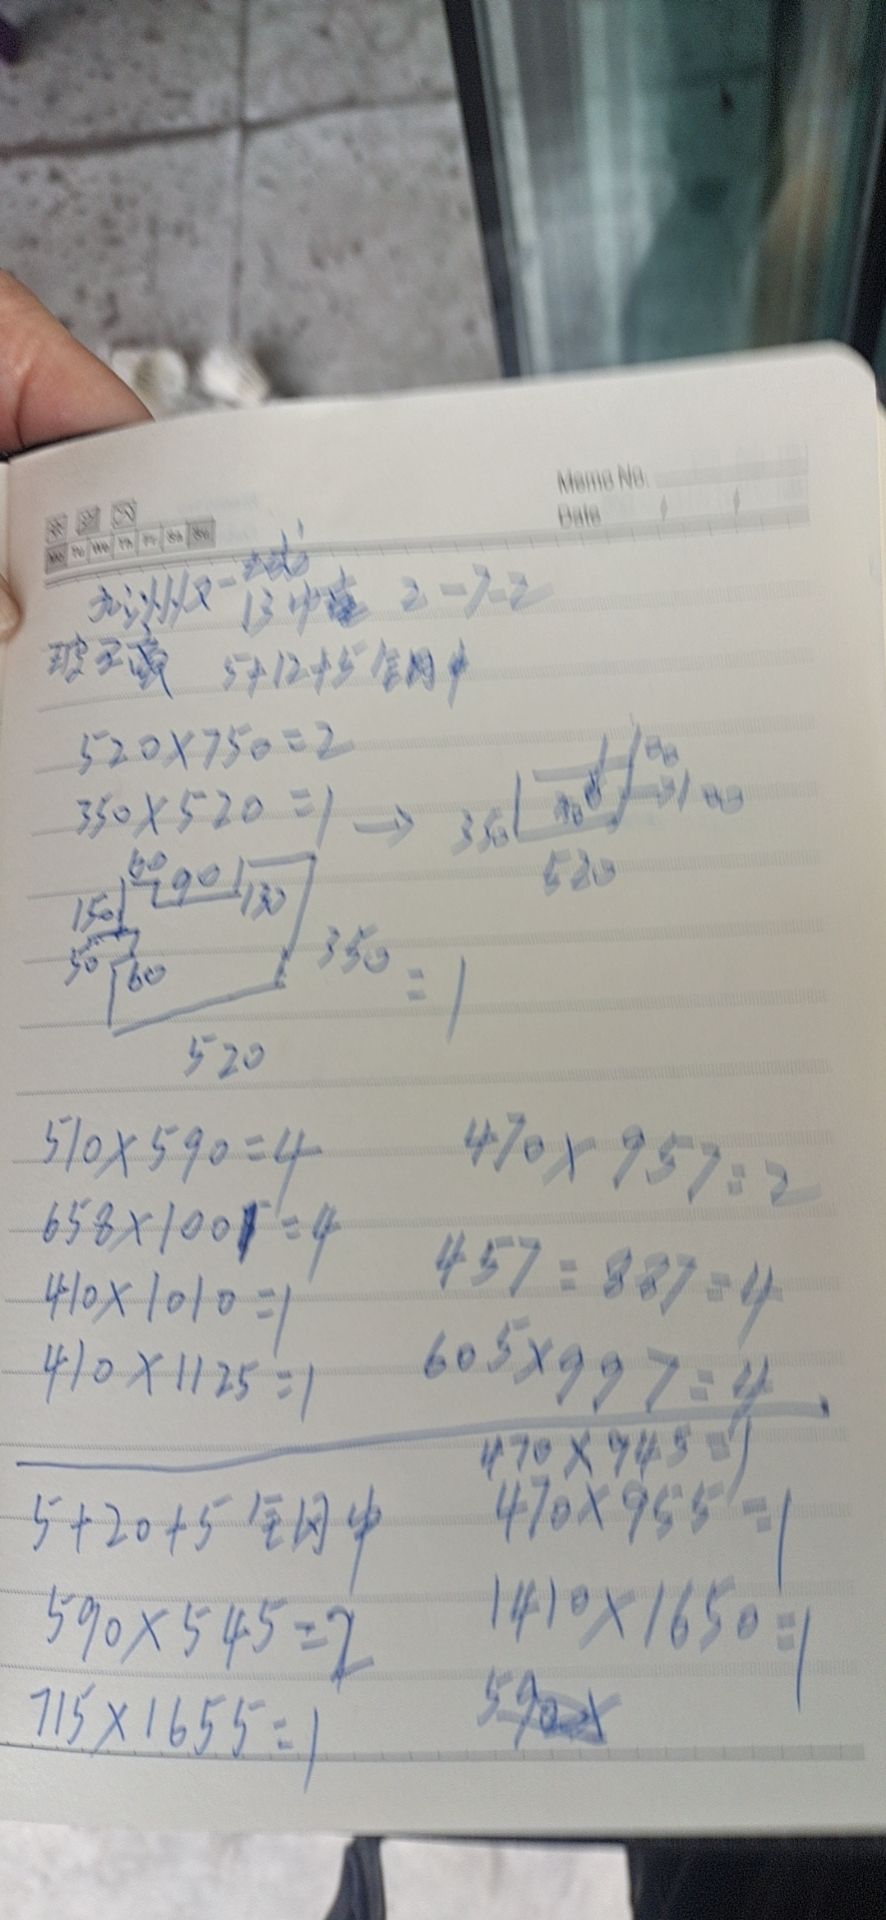 Memo No.
Date
Mo Tu We Th Fr Sa Su
2-7-2
5+12+5 全网中
520×750=2
350×520=1 →
350
520
60 90 130
150
50 60
350 =1
520
510×590=4
658×1001=4
410×1010=1
410×1125=1
470×957=2
457=887=4
605×997=4
5+20+5 全网中
590×545=2
715×1655=1
470×945=1
470×955=1
1410×1650=1